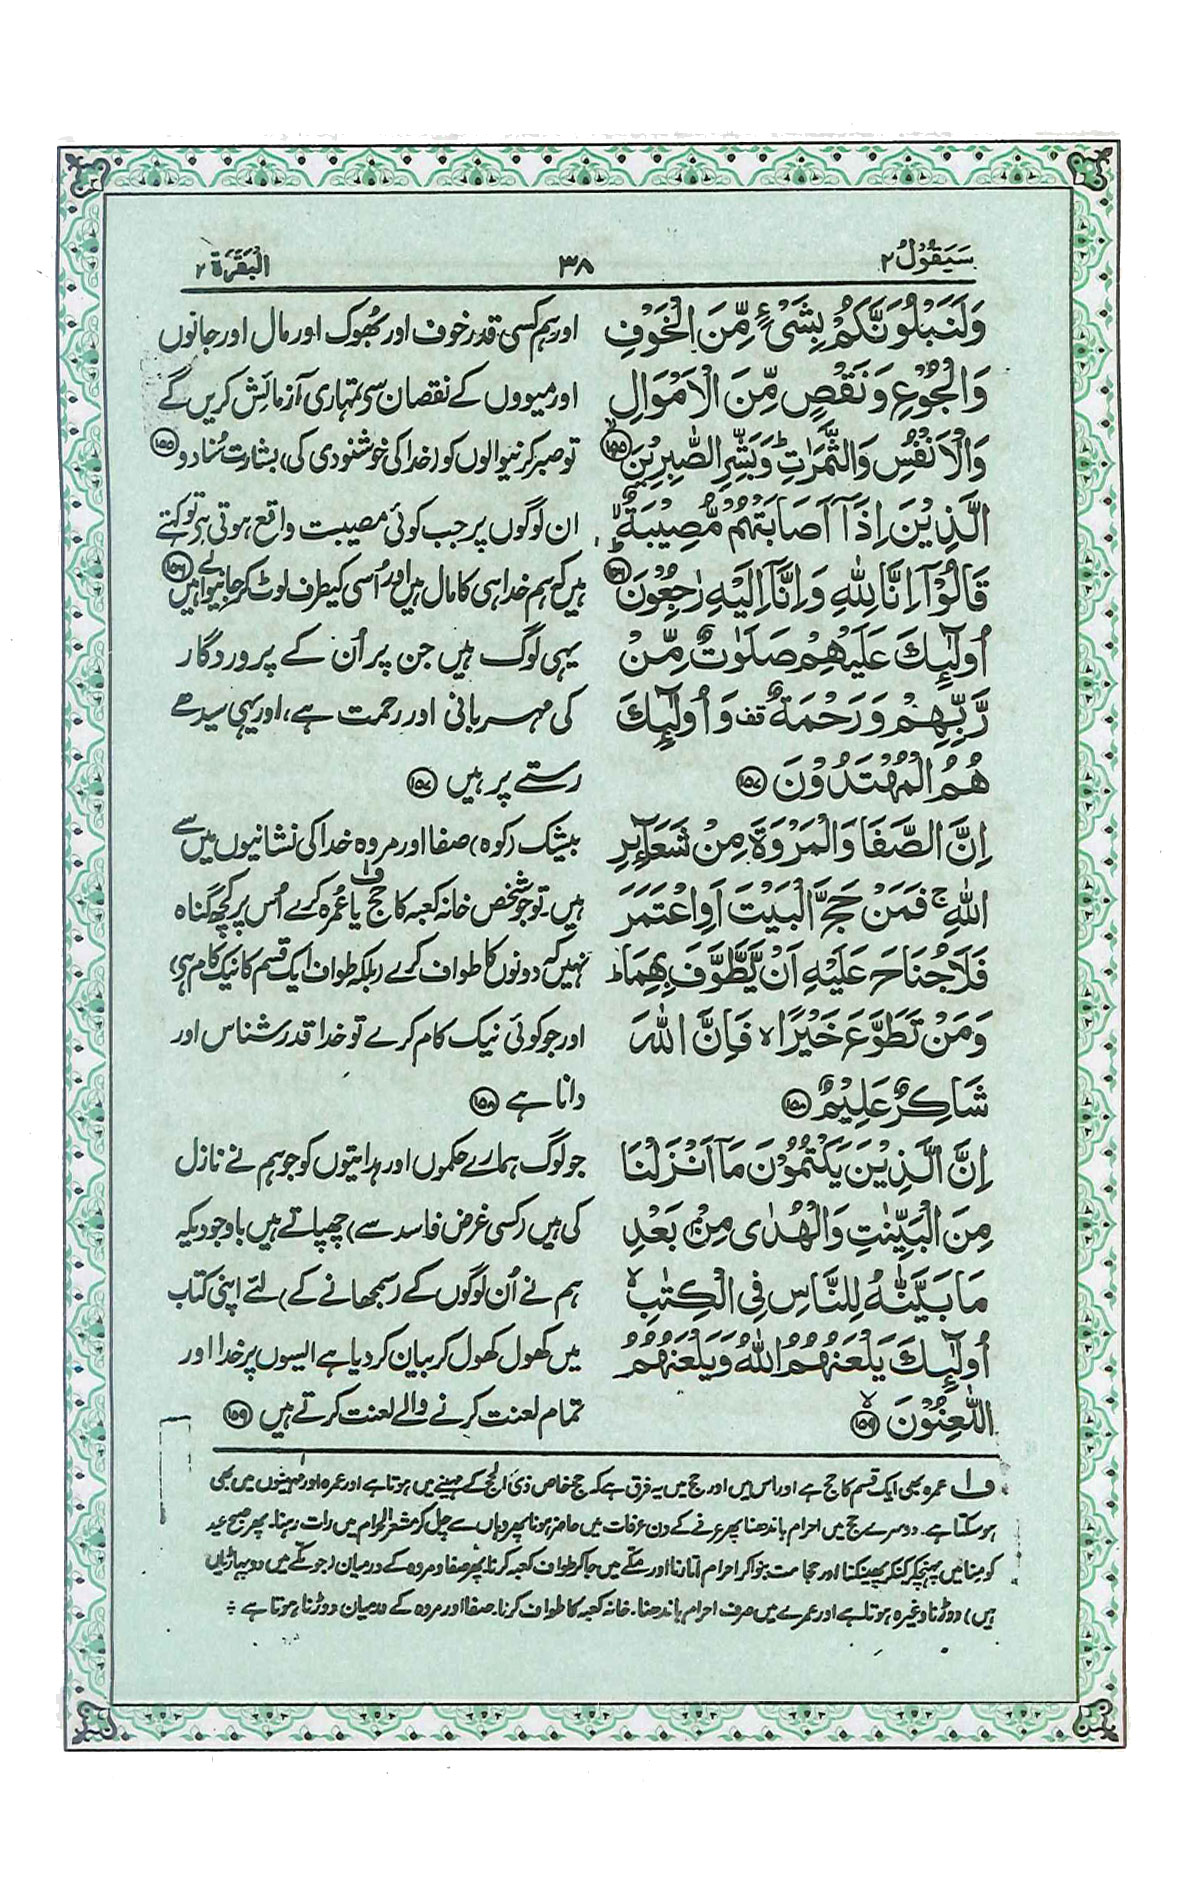 سَيَقُوْلُ ٢
٣٨
اَلْبَقَرَة ٢
وَلَنَبْلُوَنَّكُمْ بِشَیْءٍ مِّنَ الْخَوْفِ
وَالْجُوْعِ وَنَقْصٍ مِّنَ الْاَمْوَالِ
وَالْاَنْفُسِ وَالثَّمَرٰتِ ؕ وَبَشِّرِ الصّٰبِرِیْنَ ۙ ﴿۱۵۵﴾
الَّذِیْنَ اِذَاۤ اَصَابَتْهُمْ مُّصِیْبَةٌ ۙ
قَالُوْۤا اِنَّا لِلّٰهِ وَاِنَّاۤ اِلَیْهِ رٰجِعُوْنَ ؕ ﴿۱۵۶﴾
اُولٰٓئِكَ عَلَیْهِمْ صَلَوٰتٌ مِّنْ
رَّبِّهِمْ وَرَحْمَةٌ قف وَاُولٰٓئِكَ
هُمُ الْمُهْتَدُوْنَ ﴿۱۵۷﴾
اِنَّ الصَّفَا وَالْمَرْوَةَ مِنْ شَعَآئِرِ
اللّٰهِ ۚ فَمَنْ حَجَّ الْبَیْتَ اَوِ اعْتَمَرَ
فَلَا جُنَاحَ عَلَیْهِ اَنْ یَّطَّوَّفَ بِهِمَا ؕ
وَمَنْ تَطَوَّعَ خَیْرًا ۙ فَاِنَّ اللّٰهَ
شَاكِرٌ عَلِیْمٌ ﴿۱۵۸﴾
اِنَّ الَّذِیْنَ یَكْتُمُوْنَ مَاۤ اَنْزَلْنَا
مِنَ الْبَیِّنٰتِ وَالْهُدٰی مِنْۢ بَعْدِ
مَا بَیَّنّٰهُ لِلنَّاسِ فِی الْكِتٰبِ ۙ
اُولٰٓئِكَ یَلْعَنُهُمُ اللّٰهُ وَیَلْعَنُهُمُ
اللّٰعِنُوْنَ ۙ ﴿۱۵۹﴾
اور ہم کسی قدر خوف اور بھُوک اور مال اور جانوں
اور میووں کے نقصان سی تمہاری آزمائش کریں گے
تو صبر کرنیوالوں کو (خدا کی خوشنودی کی) بشارت سُنا دو ﴿۱۵۵﴾
ان لوگوں پر جب کوئی مصیبت واقع ہوتی ہی تو کہتے
ہیں کہ ہم خدا ہی کا مال ہیں اور اُسی کیطرف لوٹ کر جانیوالے ہیں ﴿۱۵۶﴾
یہی لوگ ہیں جن پر اُن کے پروردگار
کی مہربانی اور رحمت ہے، اور یہی سیدھے
رستے پر ہیں ﴿۱۵۷﴾
بیشک (کوہ) صفا اور مروہ خدا کی نشانیوں میں سے
ہیں۔ تو جو شخص خانہ کعبہ کا حج ف۱ یا عُمرہ کرے اُس پر کچھ گناہ
نہیں کہ دونوں کا طواف کرے (بلکہ طواف ایک قسم کا نیک کام ہی)
اور جو کوئی نیک کام کرے تو خدا قدر شناس اور
دانا ہے ﴿۱۵۸﴾
جو لوگ ہمارے حکموں اور ہدایتوں کو جو ہم نے نازل
کی ہیں (کسی غرض فاسد سے) چھپاتے ہیں باوجودیکہ
ہم نے اُن لوگوں کے (سمجھانے کے) لئے اپنی کتاب
میں کھول کھول کر بیان کر دیا ہے ایسوں پر خدا اور
تمام لعنت کرنے والے لعنت کرتے ہیں ﴿۱۵۹﴾
ف۱ عمرہ بھی ایک قسم کا حج ہے اور اس میں اور حج میں یہ فرق ہے کہ حج خاص ذی الحج کے مہینے میں ہوتا ہے اور عمرہ اور مہینوں میں بھی
ہو سکتا ہے۔ دوسرے حج میں احرام باندھنا پھر عرفے کے دن عرفات میں حاضر ہونا پھر وہاں سے چل کر مشعر الحرام میں رات رہنا۔ پھر صبح عید
کو منا میں پہنچکر کنکر پھینکنا اور حجامت بنوا کر احرام اتارنا اور مکّے میں جا کر طواف کعبہ کرنا پھر صفا و مروہ کے درمیان (جو مکّے میں دو پہاڑیاں
ہیں) دوڑنا وغیرہ ہوتا ہے اور عمرے میں صرف احرام باندھنا۔ خانہ کعبہ کا طواف کرنا۔ صفا اور مروہ کے درمیان دوڑنا ہوتا ہے